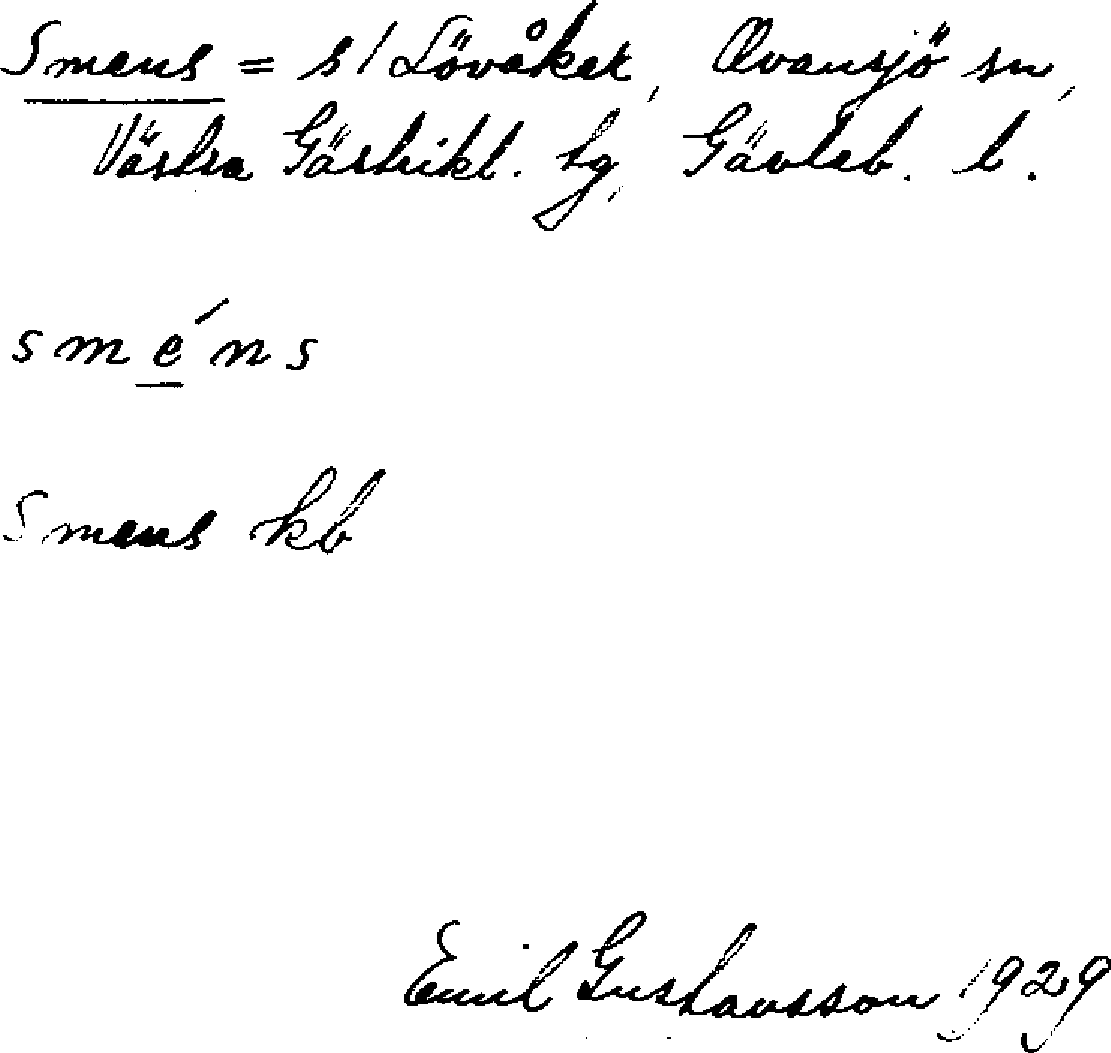 Smens = s/ Lövåker, Ovansjö sn,
Västra Gästrikl. tg, Gävleb. l.
sméns
Smens kb
Emil Gustavsson 1929